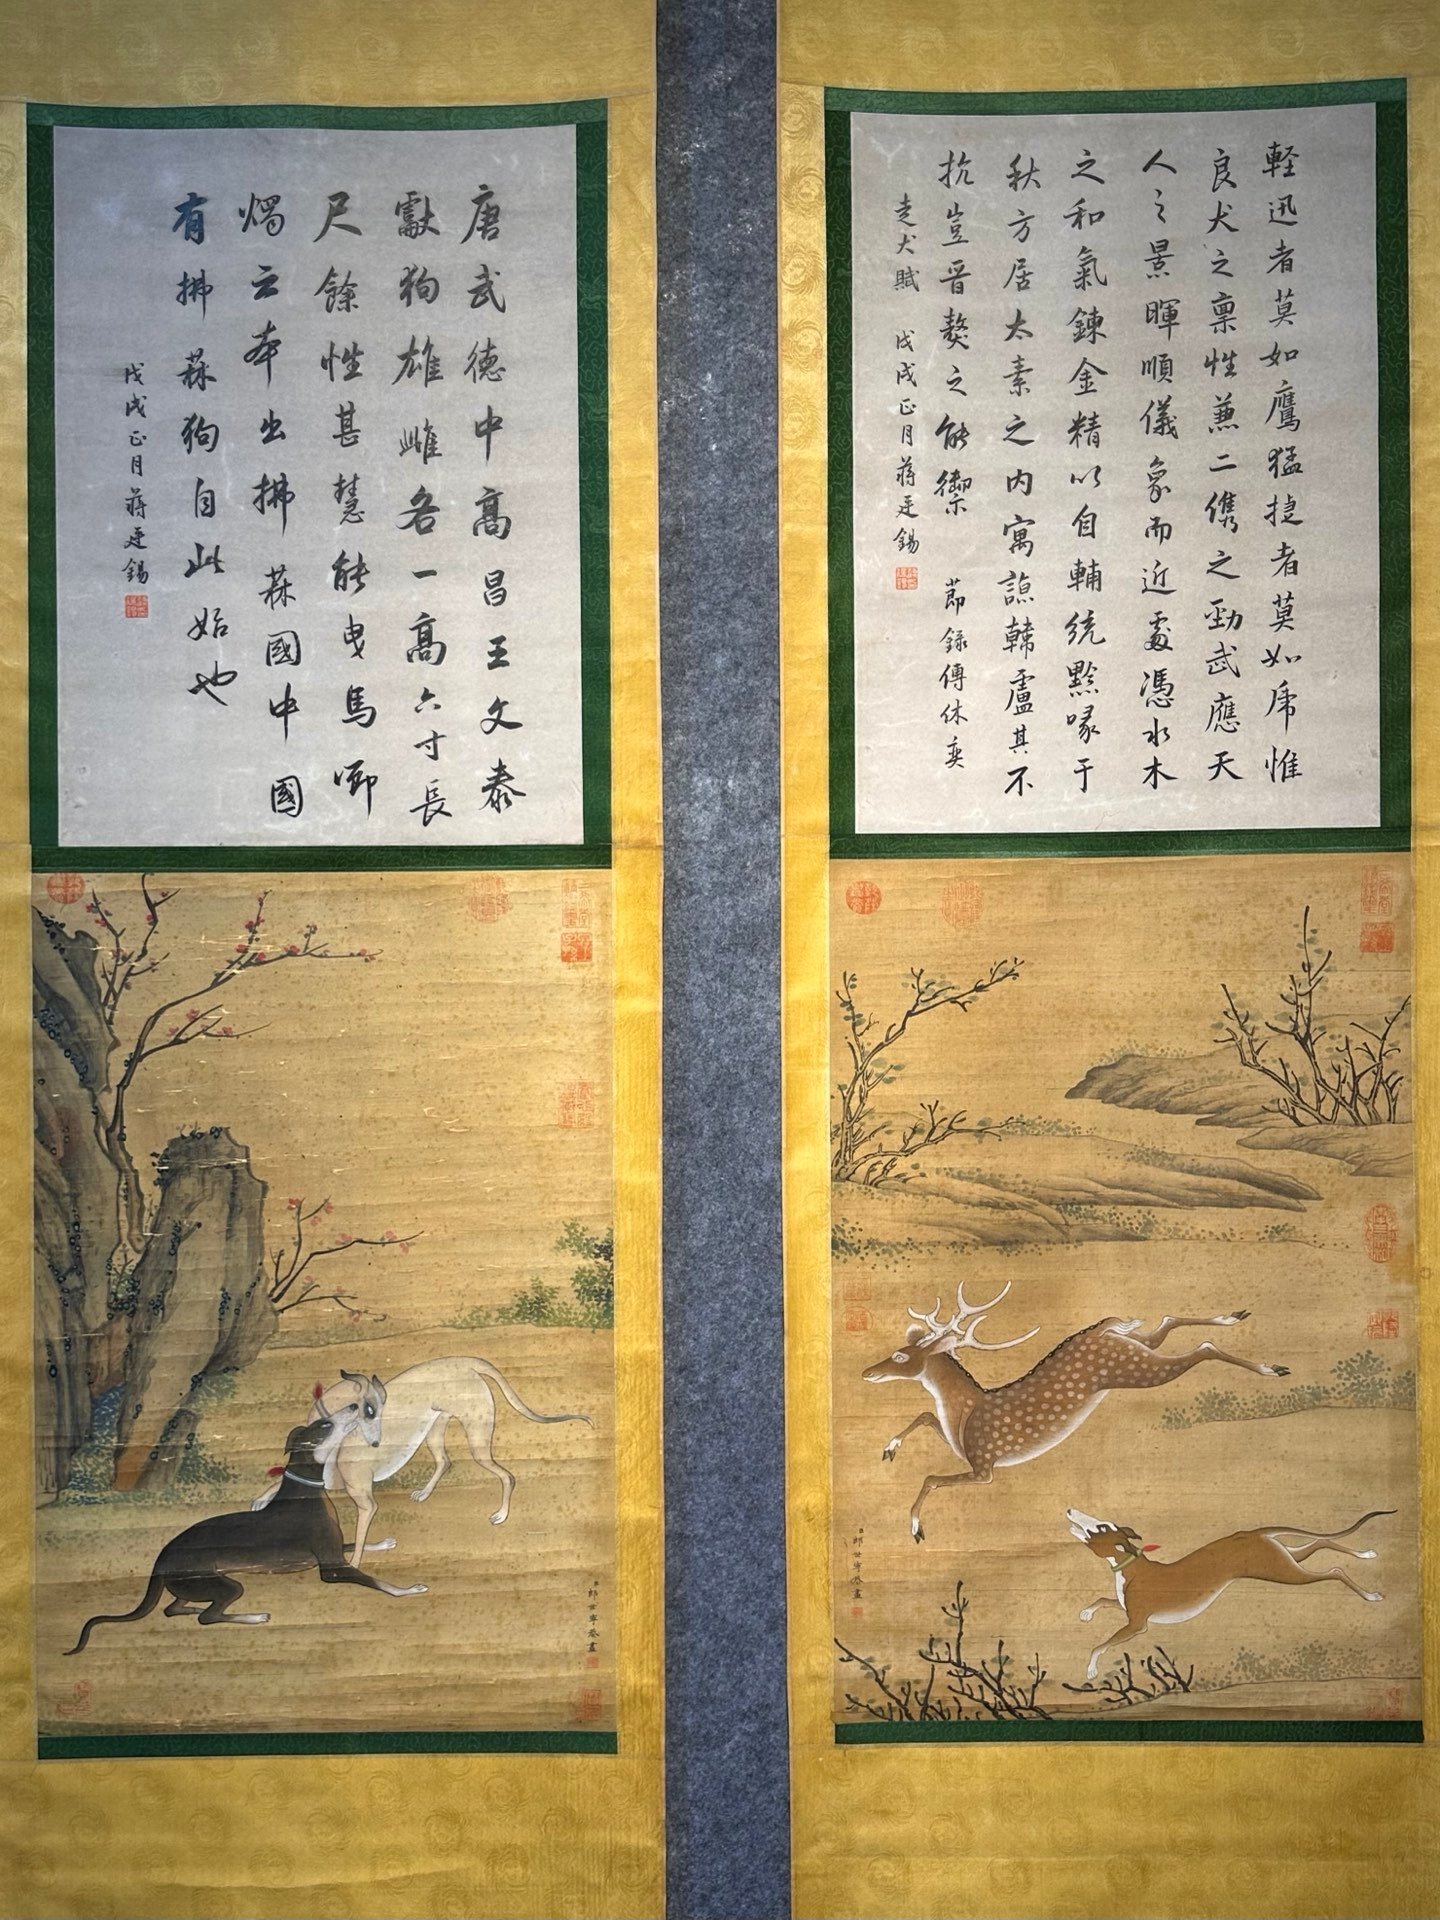 軽迅者莫如鷹猛捷者莫如虎惟
良犬之稟性兼二儁之勁武應天
人之景暉順儀象而近處憑水木
之和氣鍊金精以自輔統黔喙于
秋方居太素之内寓諒韓盧其不
抗豈晉獒之能禦 節録傅休奕
走犬賦 戊戌正月蔣廷錫
臣郎世寧恭畫
唐武德中高昌王文泰
獻狗雄雌各一高六寸長
尺餘性甚慧能曳馬啣
燭云本出拂菻國中國
有拂菻狗自此始也
戊戌正月蔣廷錫
臣郎世寧恭畫